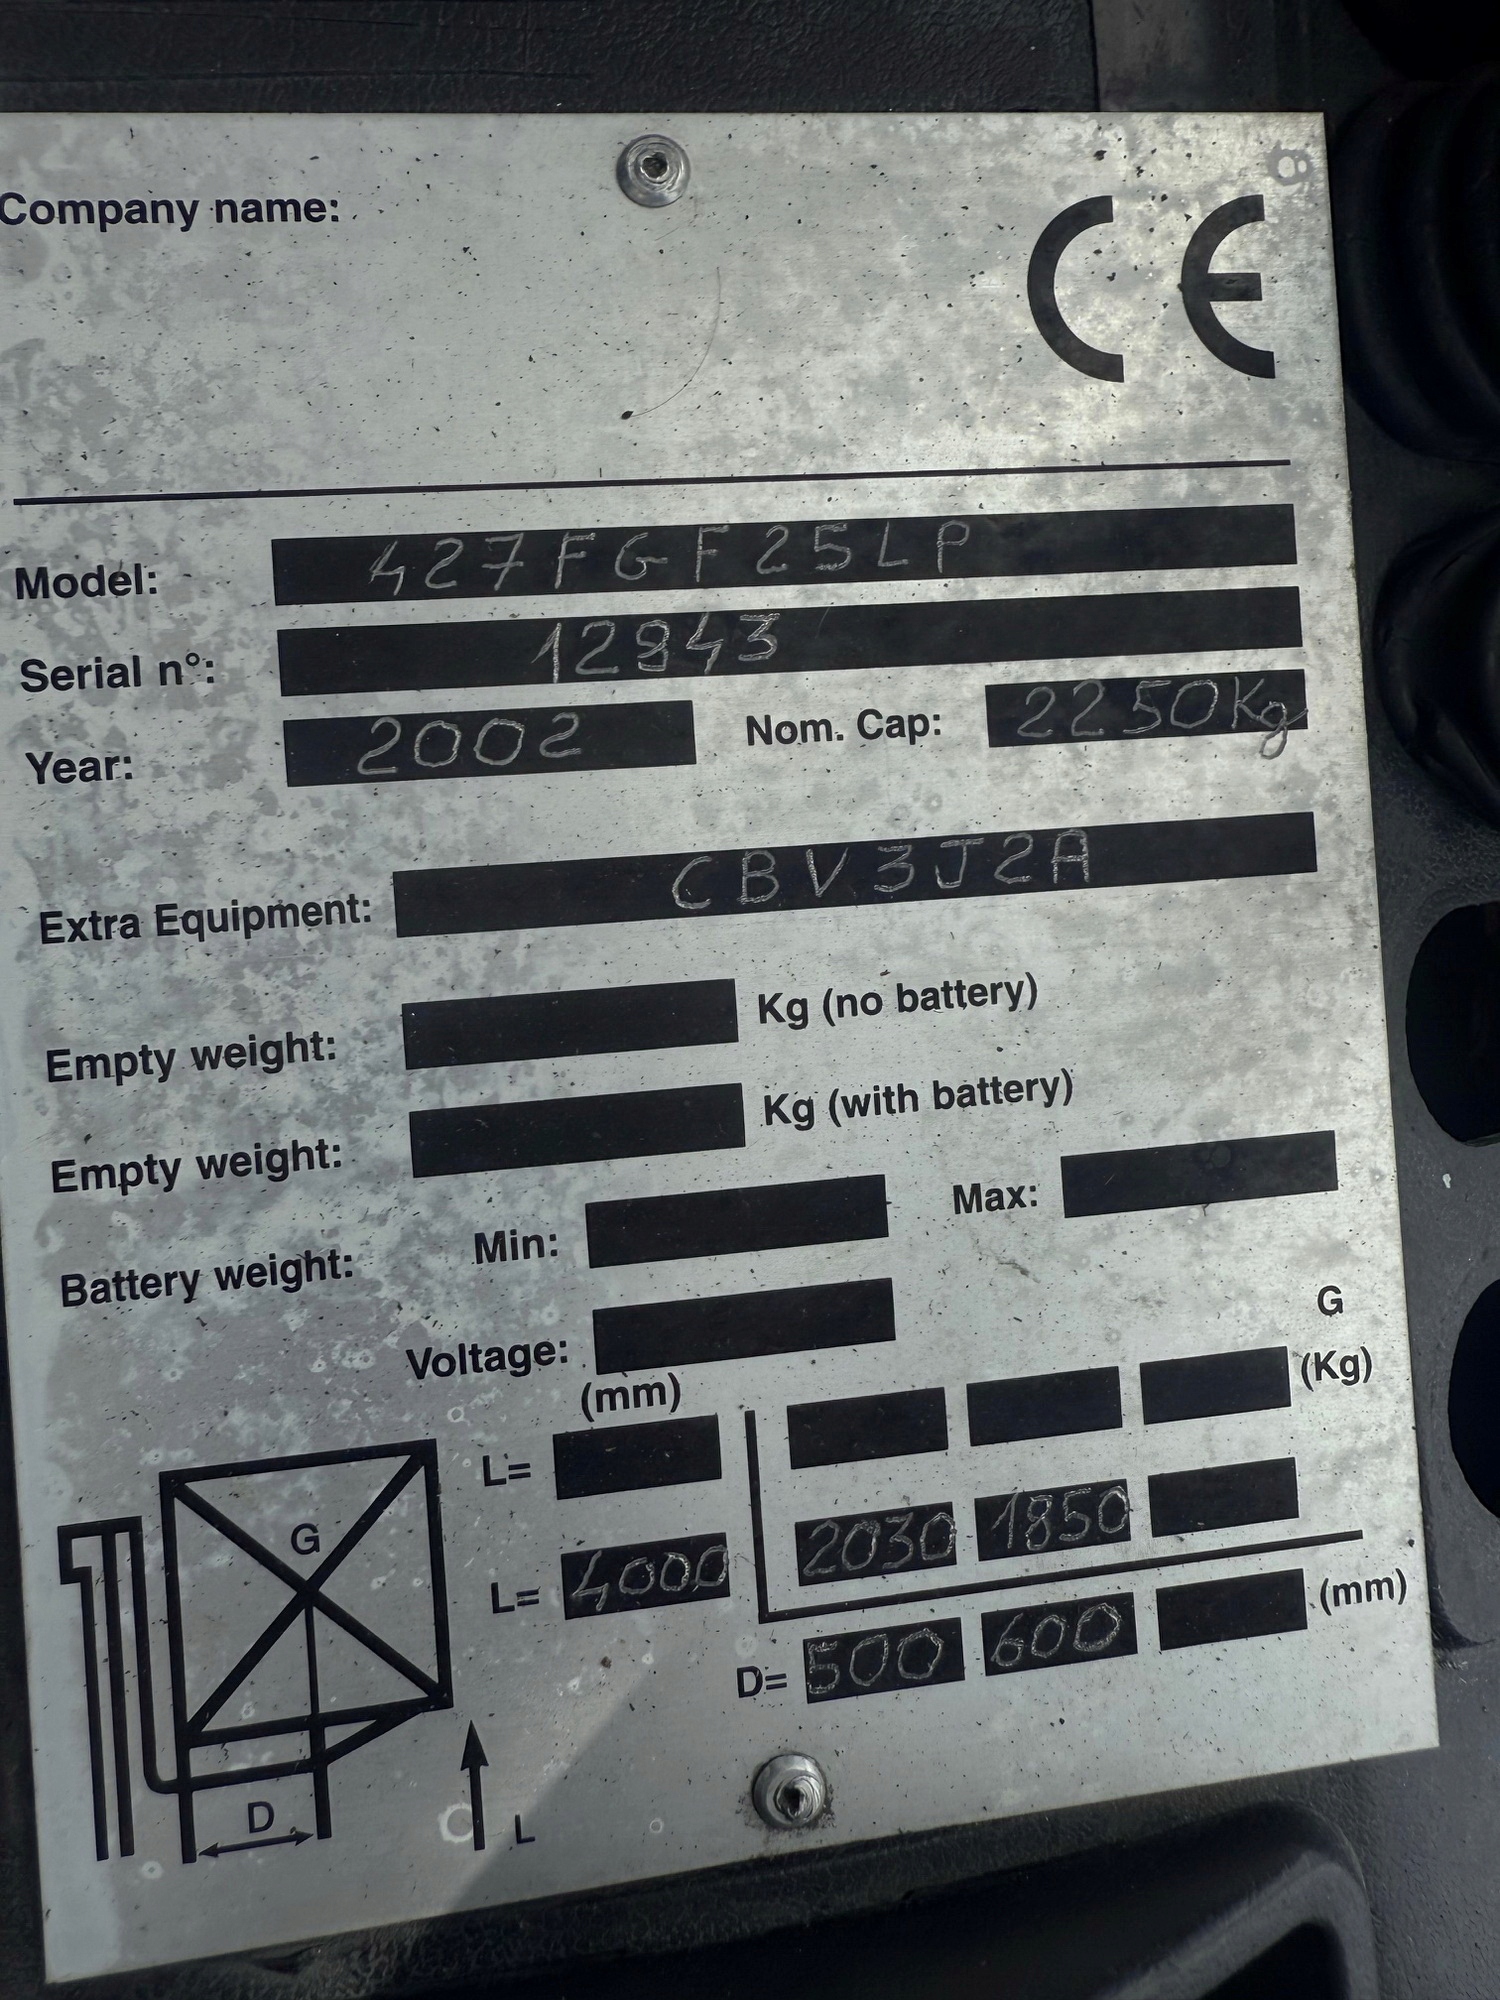 Company name:
CE
Model: 427FGF25LP
Serial n°: 12943
Year: 2002 Nom. Cap: 2250Kg
Extra Equipment: CBV3J2A
Empty weight: Kg (no battery)
Empty weight: Kg (with battery)
Battery weight: Min: Max:
Voltage:
G
(mm) (Kg)
L=
L= 4000 2030 1850
D= 500 600 (mm)
G
D
L